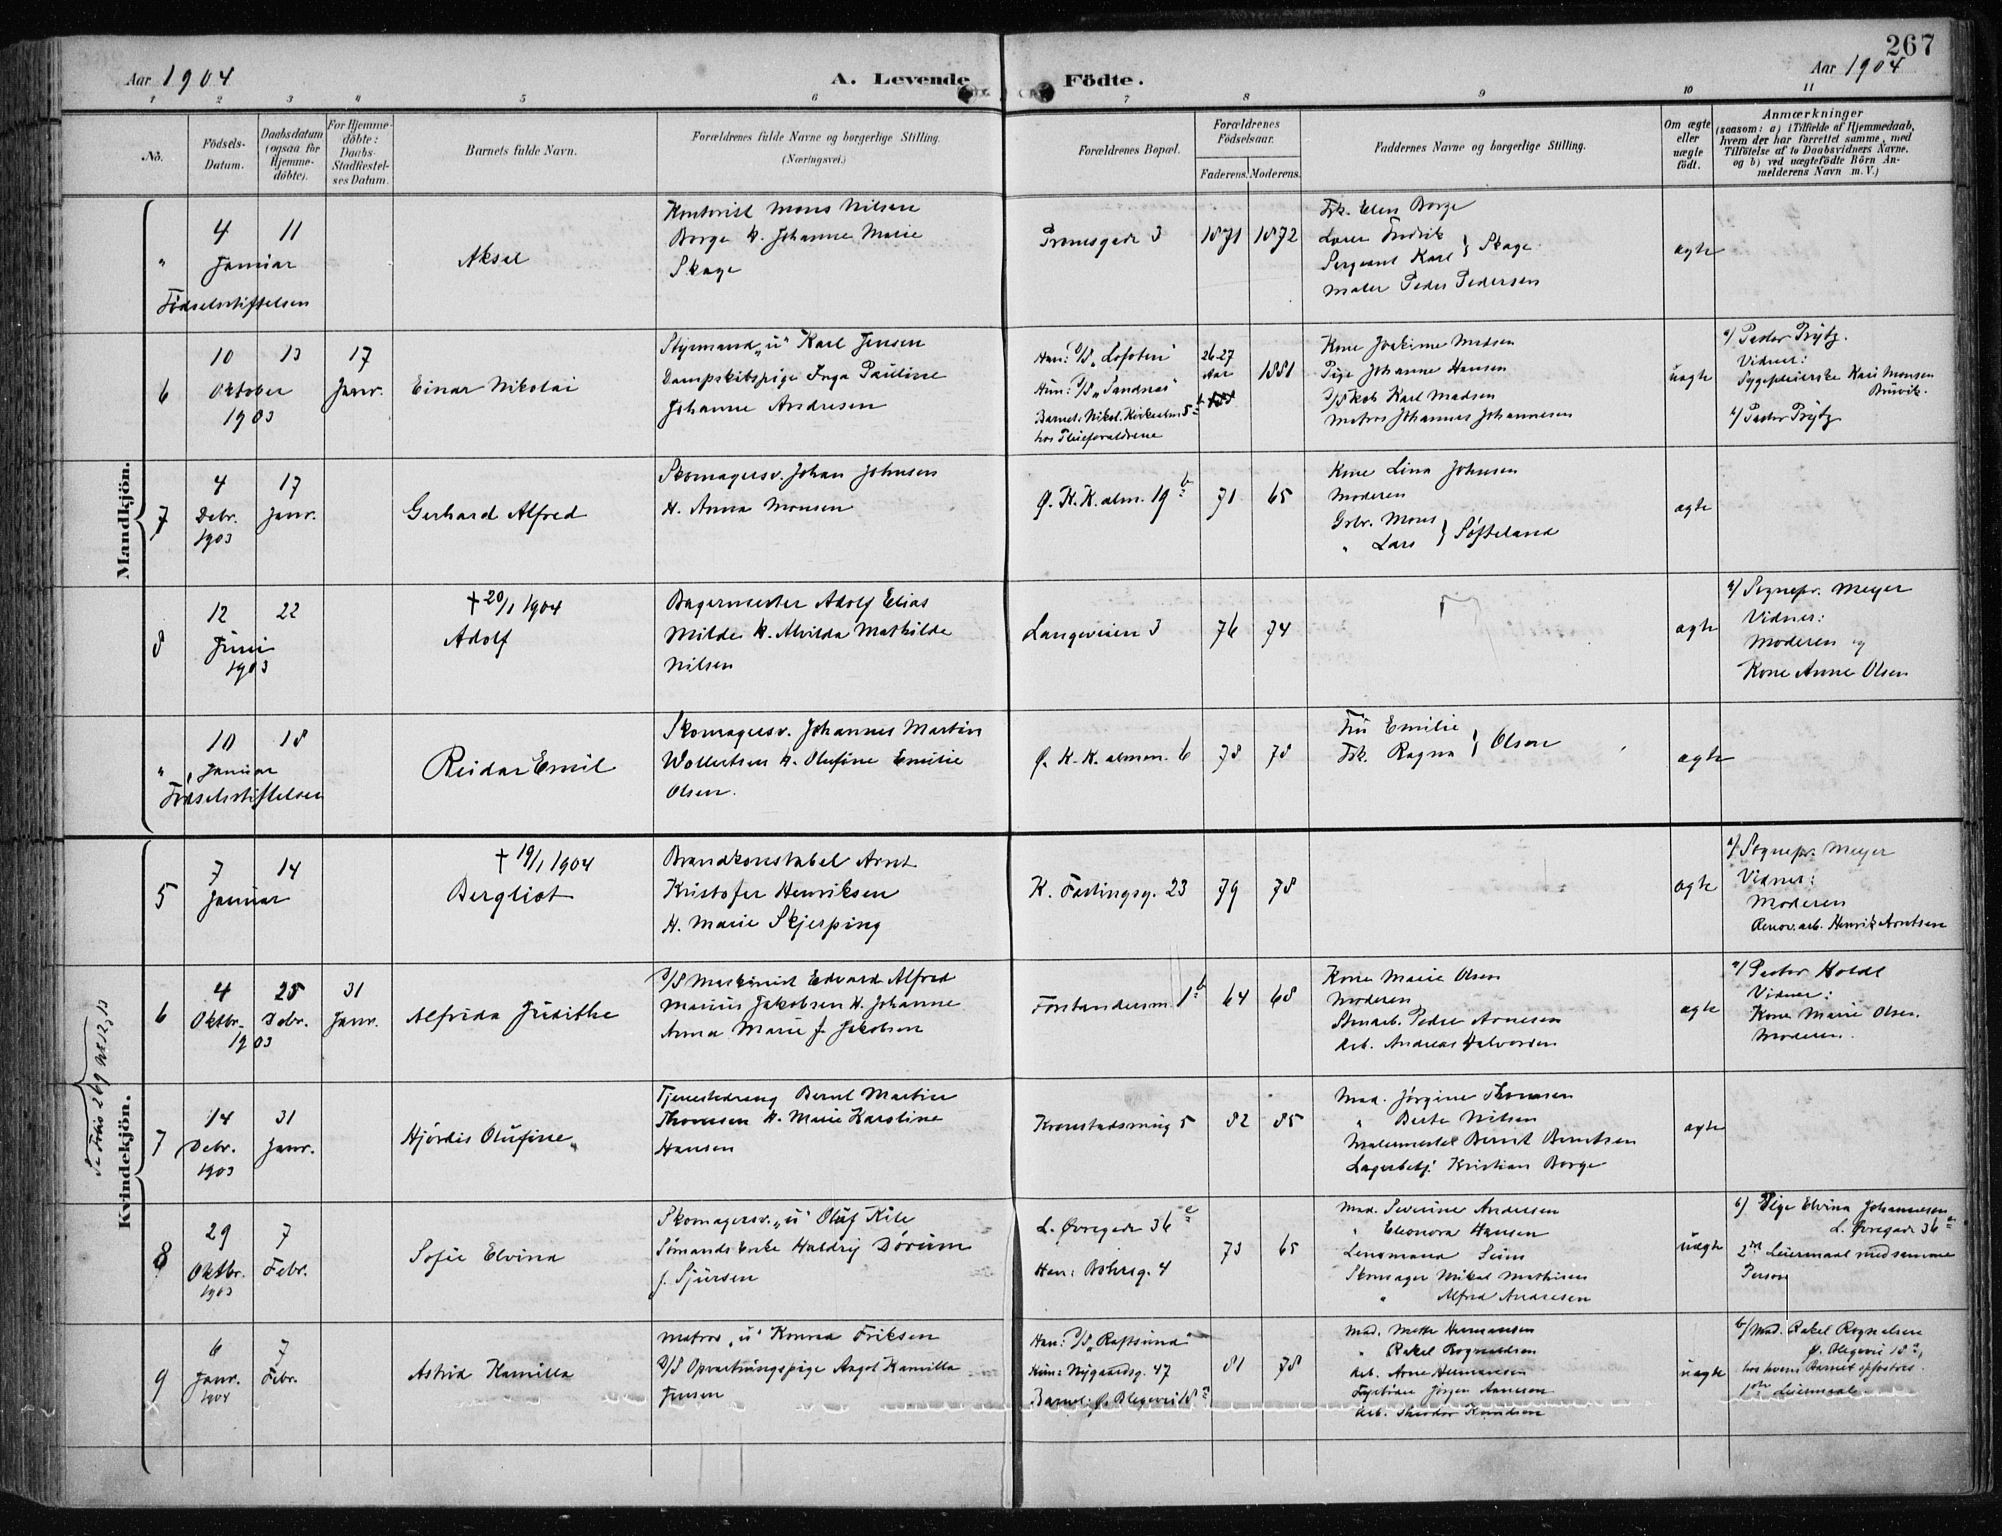 267
Aar 1904
A. Levende Födte.
Aar 1904
1 2 3 4 5 6 7 8 9 10 11
No.
Födsels-
Datum.
Daabsdatum
(ogsaa for
Hjemme-
döbte).
For Hjemme-
döbte:
Daabs-
Stadfæstel-
ses Datum.
Barnets fulde Navn.
Forældrenes fulde Navne og borgerlige Stilling.
(Næringsvei.)
Forældrenes Bopæl.
Forældrenes
Födselsaar.
Faderens. Moderens.
Faddernes Navne og borgerlige Stilling.
Om ægte
eller
uægte
født.
Anmærkninger
(saasom: a) i Tilfælde af Hjemmedaab,
hvem der har forrettet samme, med
Tilföielse af to Daabsvidners Navne.
og b) ved uægtefödte Börn An-
melderens Navn m. V.)
Mandkjön.
"
4 11
Januar
Fødselsstiftelsen
Aksel
Kontorist Mons Nilsen
Borge h. Johanne Marie
Skage
3
1871 1872
Frk. Elen Borge
Lærer Fredrik
Sergeant Karl } Skage
Maler Peder Pedersen
ægte
6
10 13 17
Oktober Janr.
1903
Einar Nikolai
Styrmand "u" Karl Jensen
Dampskibspige Inga Pauline
Johanne Andresen
Han: D/S "Lofoten"
Hun: D/S "Sandnæs"
Barnet: Nikol. Kirkealm. 5
hos Pleieforældrene
26-27
Aar
1881
Kone Joakime Madsen
Pige Johanne Hansen
Karl Madsen
Matros Johannes Johannesen
uægte
a/ Pastor Prytz.
Vidner:
Sygepleierske Kari Monsen
Buvik.
Pastor Prytz
7
4 17
Debr. Janr.
1903
Gerhard Alfred
Skomagersv. Johan Johnsen
H. Anna Monsen
Ø. K. K. alm. 19 b
71 65
Kone Lina Johnsen
Moderen
Gbr. Mons
" Lars } Søfteland
ægte
8
12 22
Juni
1903
† 20/1 1904
Adolf
Bagermester Adolf Elias
Milde h. Alvilda Mathilde
Nilsen
Langeveien 3
76 74
ægte
a/ Sognepr. Meyer
Vidner:
Moderen og
Kone Anne Olsen
"
10 18
Januar
Fødselsstiftelsen
Reidar Emil
Skomagersv. Johannes Martin
Wollertsen h. Olufine Emilie
Olsen.
Ø. K. K. almen. 6
78 78
Fru Emilie
Frk. Ragna } Olson
ægte
Kvindekjön.
Se Folio 269 No 12, 13
5
7 14
Januar
† 19/1 1904
Bergliot
Brandkonstabel Arnt
Kristofer Henriksen
H. Marie Skjerping
K. Fastingsg. 23
79 78
ægte
a/ Sognepr. Meyer
Vidner:
Moderen
Renov.arb. Henrik Arntsen
6
4 25 31
Oktbr. Debr. Janr.
1903
Alfrida Judithe
D/S Maskinist Edvard Alfred
Marius Jakobsen H. Johanne
Anna Marie f. Jakobsen
Forstandersm. 1 b
64 68
Kone Marie Olsen
Moderen
Stenarb. Peder Arnesen
Arb. Andreas Halvorsen
ægte
a/ Pastor Koldl
Vidner:
Kone Marie Olsen.
Moderen.
7
14 31
Debr. Janr.
1903
Hjørdis Olufine
Tjenestedreng Bernt Martin
Thomsen h. Marie Karoline
Hansen
Kronstadsmug 5
82 85
Mad. Jørgine Thomsen
" Berte Nilsen
Malermester Bernt Berntsen
Lagerbetj. Kristian Borge
ægte
8
29 7
Oktbr. Febr.
1903
Sofie Elvina
Skomagersv. "u" Oluf Kile
Sømands Enke Haldrij Dörum
f. Sjursen
L. Øvregade 36 c
Han: Bohrsg. 4
73 65
Mad. Severine Andersen
" Eleonora Hansen
Lensmand Seim
Skomager Mikal Mathisen
" Alfred Andresen
uægte
b/ Pige Elvina Johannesen
L. Øvregade 36 c
2det Leiermaal med samme
Person
9
6 7
Janr. Febr.
1904
Astrid Kamilla
Matros "u" Konrad Eriksen
D/S Opvartningspige Aagot Kamilla
Jensen
Han: D/S "Raftsund"
Hun: Nygaardsg. 47
Barnet: Ø. Blegevei 18 a
81 78
Mad. Mette Hermansen
" Rakel Rognaldsen
Arb. Arne Hermansen
Fyrbøder Jørgen Arnesen
Arb. Theodor Knudsen
uægte
b/ Mad. Rakel Rognaldsen
Ø. Blegevei 18 a,
hos hvem Barnet opfostres.
1ste Leiermaal.